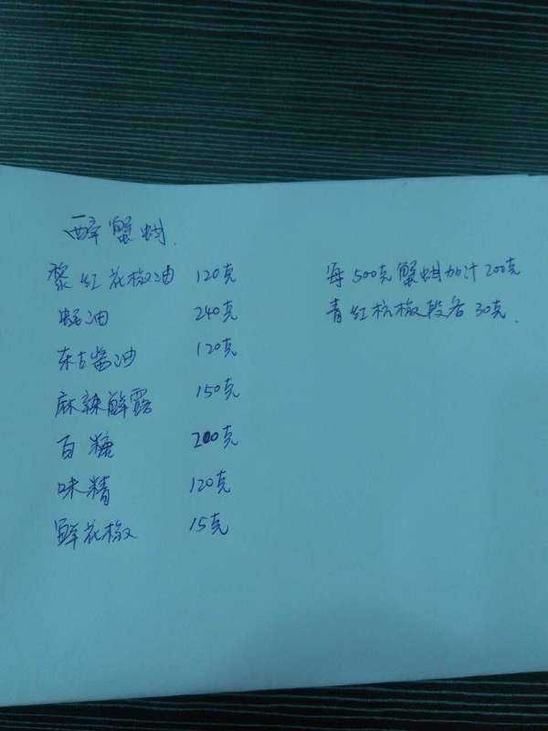 醉蟹蚶
黎红花椒油 120克
蚝油 240克
东古酱油 120克
麻辣鲜露 150克
白糖 200克
味精 120克
鲜花椒 15克
每500克蟹蚶加汁200克
青红杭椒段各30克.